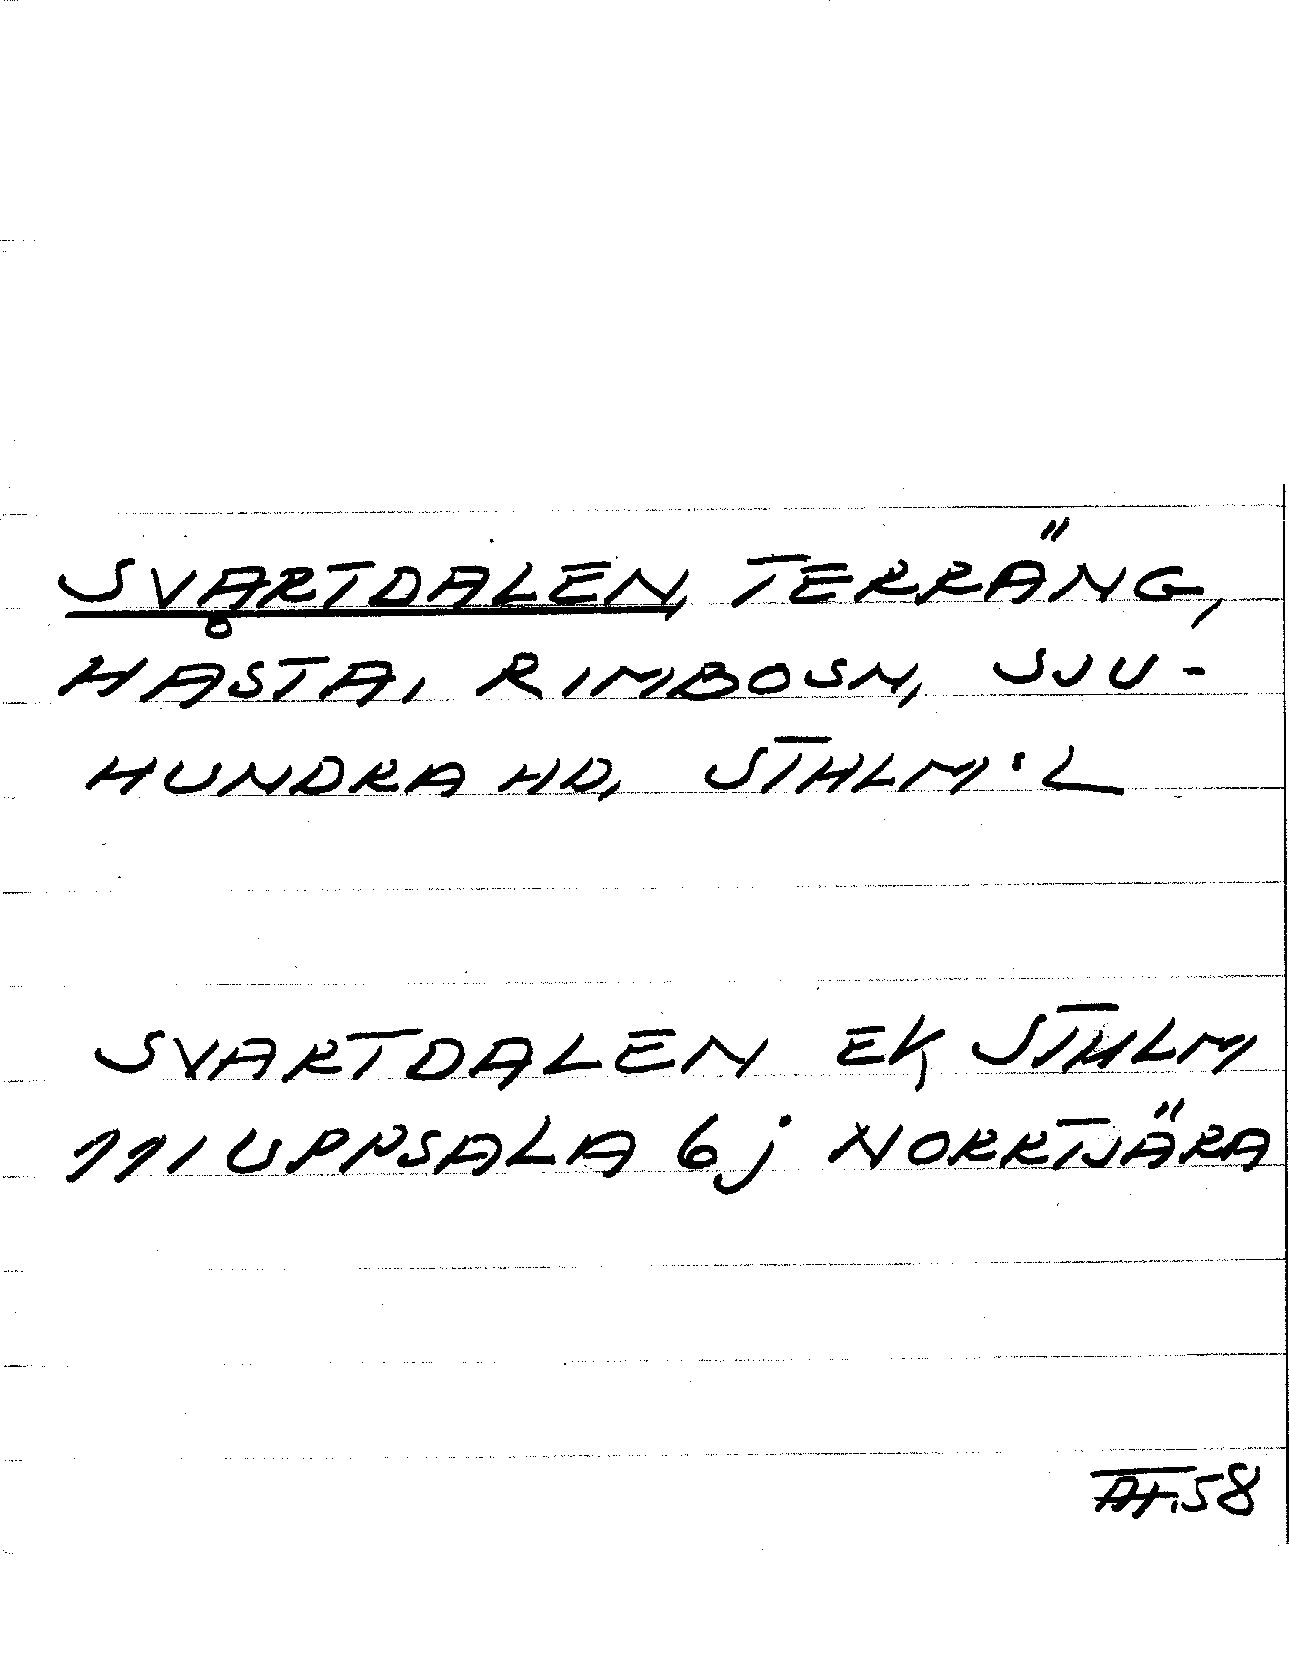 SVARTDALEN, TERRÄNG,
HÅSTA, RIMBOSN, SJU-
HUNDRA HD, STHLM:L
SVARTDALEN EK STHLM
11I UPPSALA 6j NORRTJÄRA
58